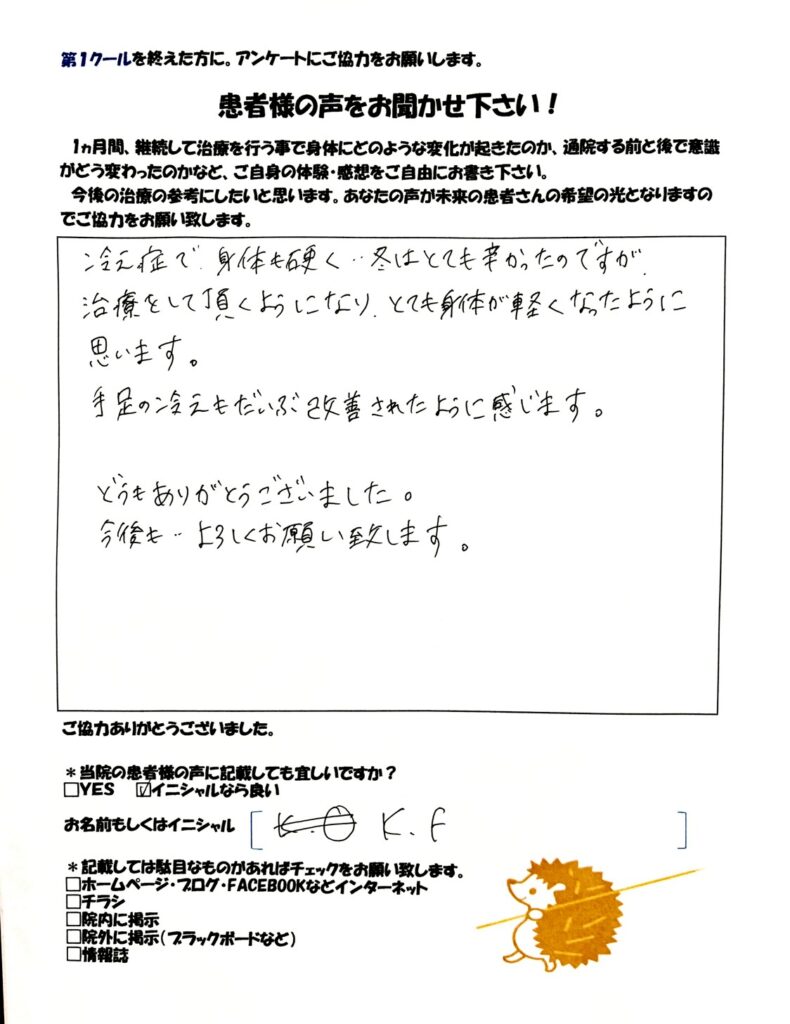 第1クールを終えた方に。アンケートにご協力をお願いします。
患者様の声をお聞かせ下さい！
1ヵ月間、継続して治療を行う事で身体にどのような変化が起きたのか、通院する前と後で意識
がどう変わったのかなど、ご自身の体験・感想をご自由にお書き下さい。
今後の治療の参考にしたいと思います。あなたの声が未来の患者さんの希望の光となりますの
でご協力をお願い致します。
冷え症で、身体も硬く‥冬はとても辛かったのですが、
治療をして頂くようになり、とても身体が軽くなったように
思います。
手足の冷えもだいぶ改善されたように感じます。
どうもありがとうございました。
今後も‥よろしくお願い致します。
ご協力ありがとうございました。
＊当院の患者様の声に記載しても宜しいですか？
□YES ☑イニシャルなら良い
お名前もしくはイニシャル [ K.O K.F ]
＊記載しては駄目なものがあればチェックをお願い致します。
□ホームページ・ブログ・FACEBOOKなどインターネット
□チラシ
□院内に掲示
□院外に掲示（ブラックボードなど）
□情報誌